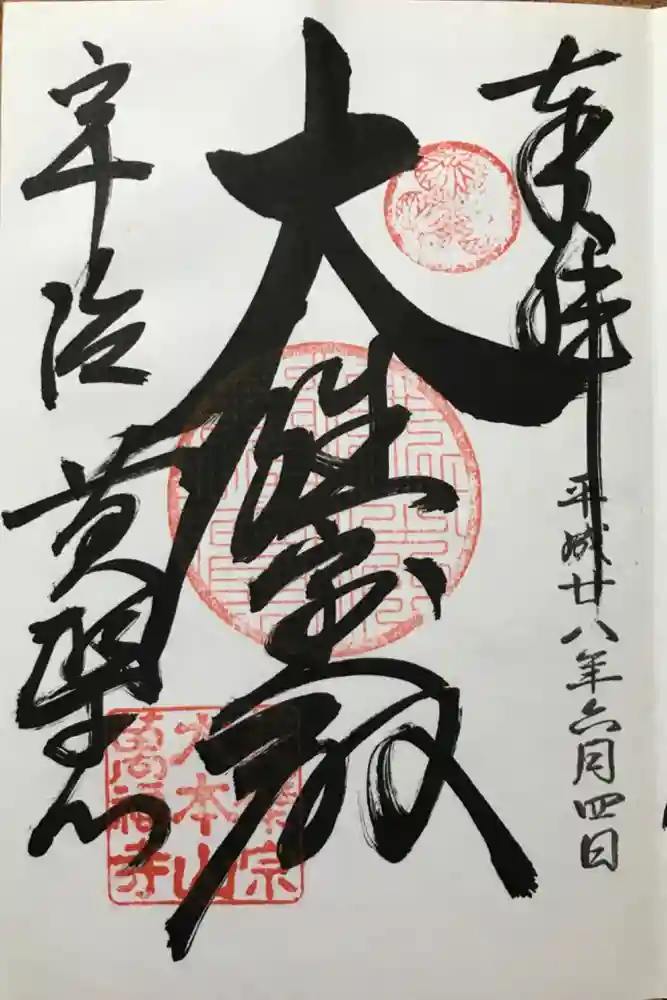 奉拝
平成廿八年六月四日
大雄宝殿
宇治
黄檗山
黄檗宗
大本山
萬福寺